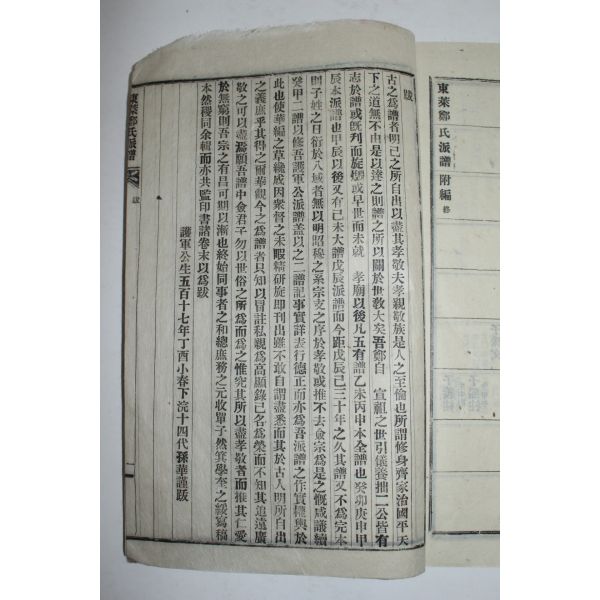 跋
古之為譜者明己之所自出以盡其孝敬夫孝親敬族是人之至倫也所謂修身齊家治國平天
下之道無不由是以達之則譜之所以關於世敎大矣吾鄭自 宣祖之世引儀養拙二公皆有
志於譜或旣刊而旋 或早世而未就 孝廟以後凡五有譜乙未丙申本全譜也癸卯庚申甲
辰本派譜也甲辰以後又有己未大譜戊辰派譜而今距戊辰己三十年之久其譜又不為完本
則子姓之日衍於八域者無以明昭穆之系宗支之序於孝敬或推不去僉宗為是之慨咸議續
癸甲二譜以修吾護軍公派譜盖以之二譜記事實詳表行德正而亦為吾派譜之作實權輿於
此也使華編之草纔成因衆督之未暇精硏旋即刊出雖不敢自謂盡悉而其於古人明所自出
之義庶乎其得之爾華觀今之為譜者只知以冒註私親為高顯錄己名為榮而不知其追遠廣
敬之可以盡 願吾譜中僉君子勿以世俗之所為而為之惟究其所以盡孝敬者而推其仁愛
於無窮則吾宗之有昌可期以漸也終始同事者之和總庶務之元收單子然箕學奎之緩寫稿
本然稷同余輯而亦共監印書諸卷末以為跋
護軍公生五百十七年丁酉小春下浣十四代孫華謹跋
東萊鄭氏派譜
跋
一
東萊鄭氏派譜 附編 終